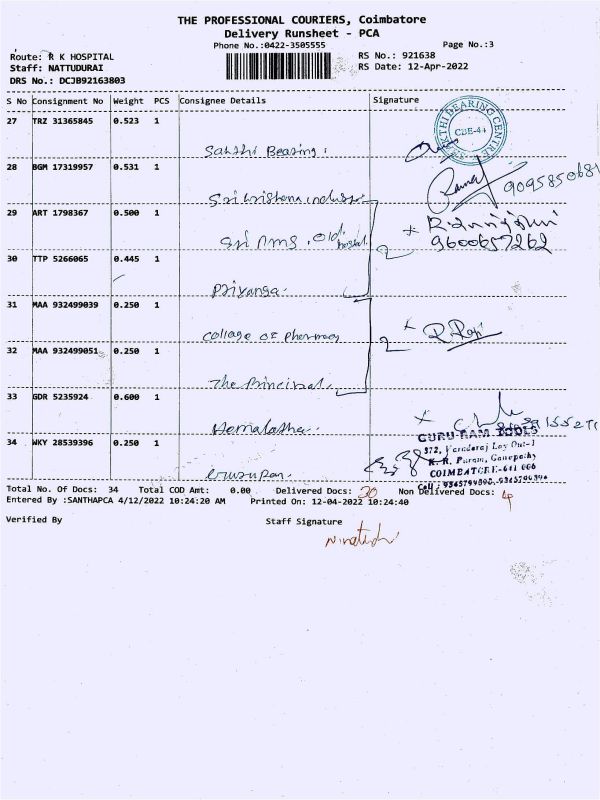 THE PROFESSIONAL COURIERS, Coimbatore
Delivery Runsheet - PCA
Phone No.:0422-3505555 Page No.:3
Route: R K HOSPITAL RS No.: 921638
Staff: NATTUDURAI RS Date: 12-Apr-2022
DRS No.: DCJB92163803
S No Consignment No Weight PCS Consignee Details Signature
27 TRZ 31365845 0.523 1
CBE-44
Sakthi Bearing.
28 BGM 17319957 0.531 1
9095850681
29 ART 1798367 0.500 1
9600657262
Sri nms. Old hostel.
30 TTP 5266065 0.445 1
Priyanga.
31 MAA 932499039 0.250 1
Collage of Pharmacy
32 MAA 932499051 0.250 1
The Principal.
33 GDR 5235924 0.600 1
Hemalatha.
GURU RAM TOOLS
34 WKY 28539396 0.250 1
372, Varadaraj Lay Out-1
K. R. Puram, Ganapathy
COIMBATORE-641 006
Total No. Of Docs: 34 Total COD Amt: 0.00 Delivered Docs: 30 Non Delivered Docs: 4
Entered By :SANTHAPCA 4/12/2022 10:24:20 AM Printed On: 12-04-2022 10:24:40
Verified By Staff Signature